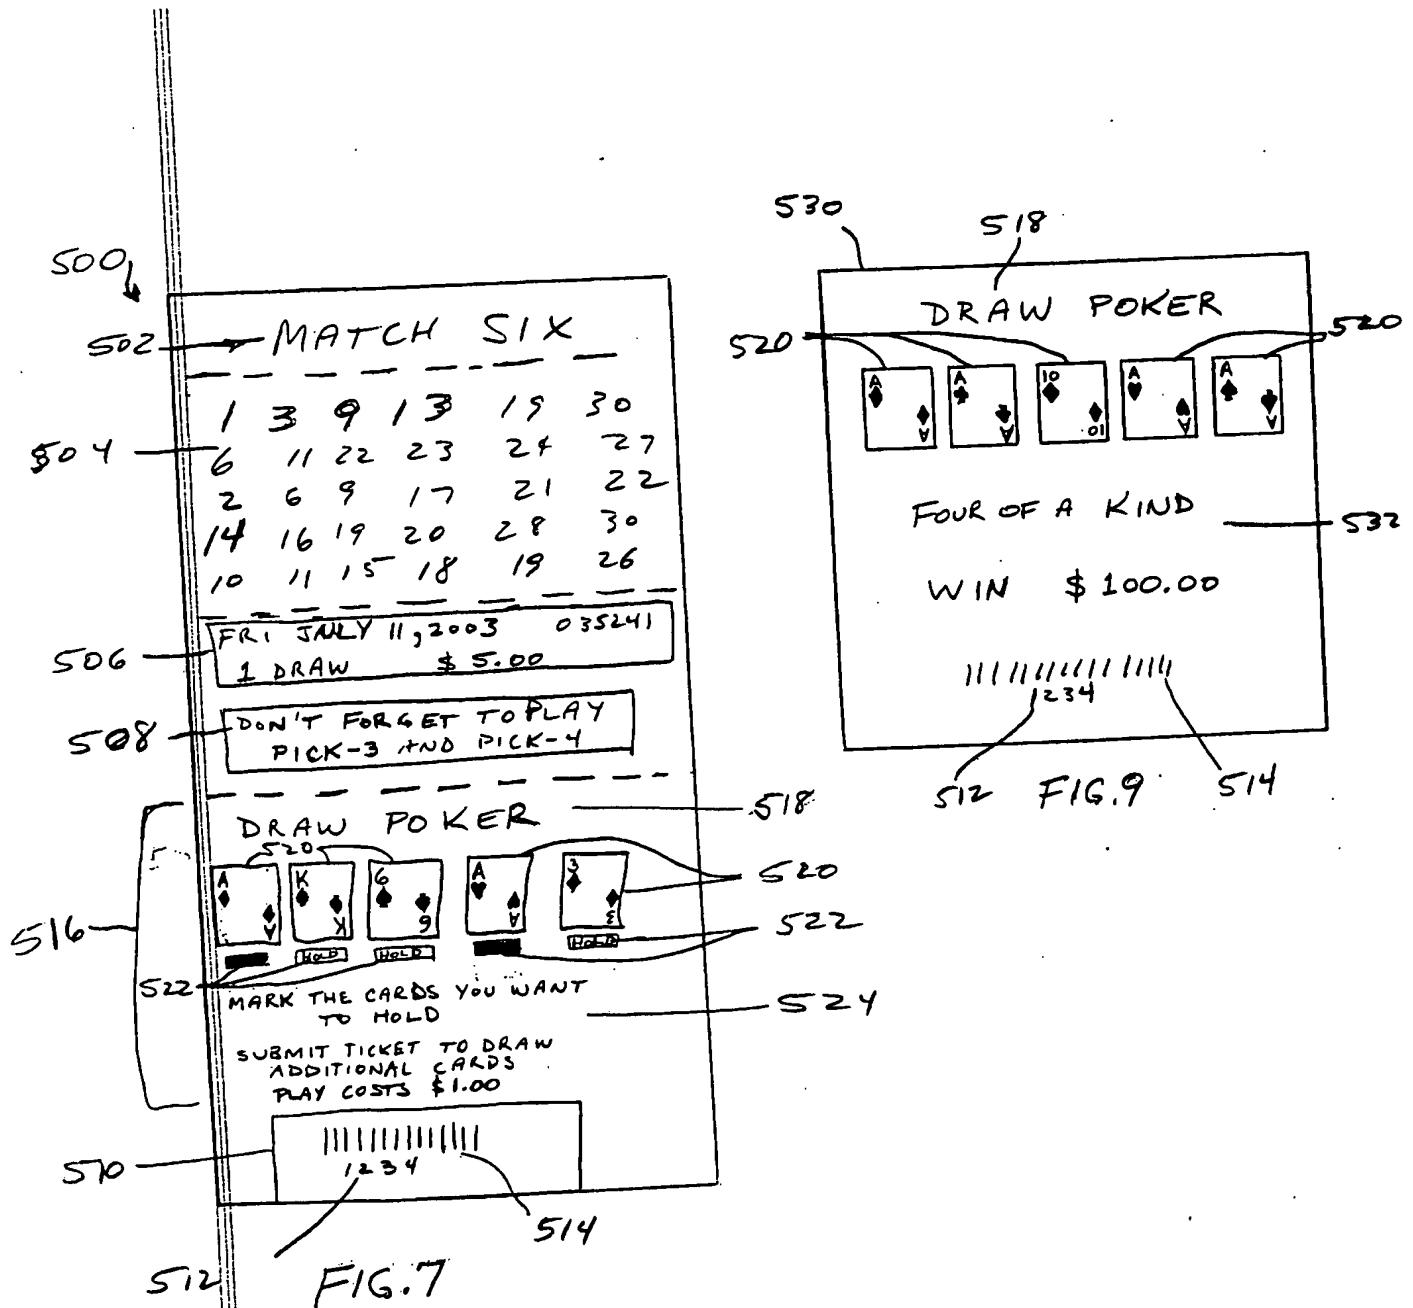 500
502 MATCH SIX
1 3 9 13 19 30
504 6 11 22 23 24 27
2 6 9 17 21 22
14 16 19 20 28 30
10 11 15 18 19 26
FRI JULY 11, 2003 035241
506 1 DRAW $ 5.00
508 DON'T FORGET TO PLAY
PICK-3 AND PICK-4
518
DRAW POKER
520
A K 6 A 3
520
A K 6 A 3
516
522
HOLD HOLD HOLD
522 MARK THE CARDS YOU WANT
TO HOLD
524
SUBMIT TICKET TO DRAW
ADDITIONAL CARDS
PLAY COSTS $1.00
510
1234
514
512 FIG.7
530
518
DRAW POKER
520 520
A A 10 A A
A A 10 A A
FOUR OF A KIND
532
WIN $ 100.00
1234
512 FIG.9 514